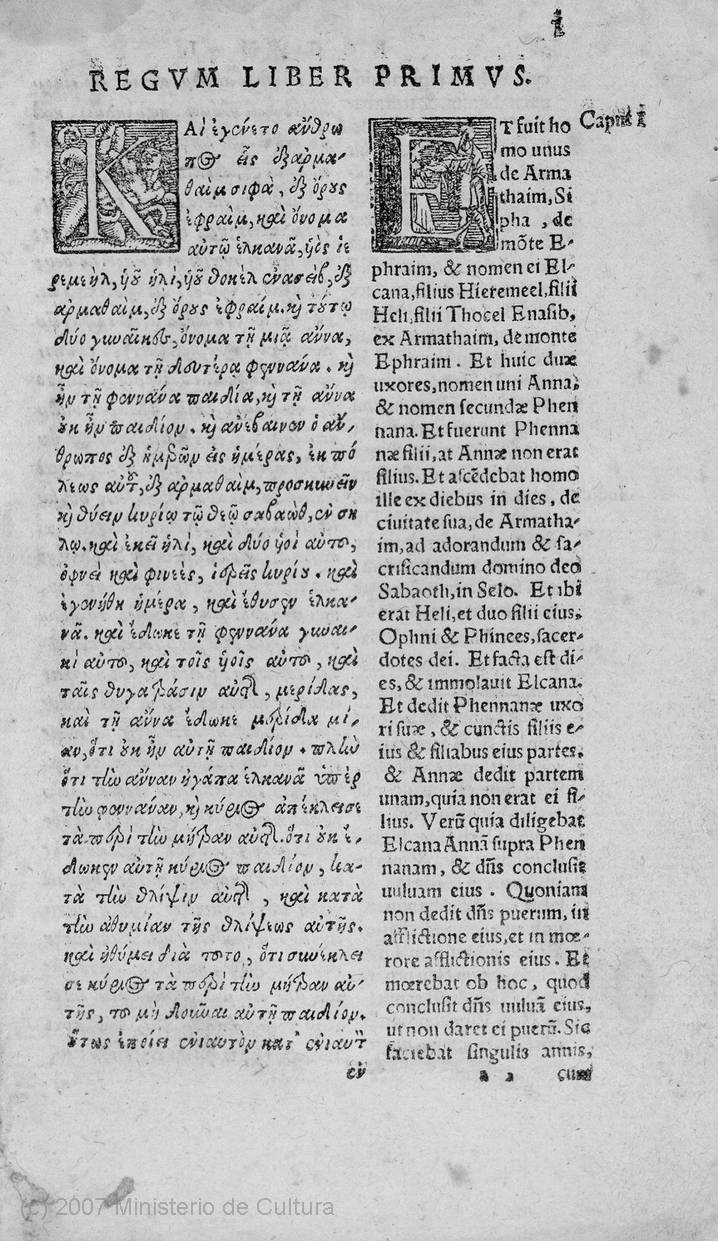 1
REGVM LIBER PRIMVS.
ΚΑὶ ἐγένετο ἄνθρω
πος εἷς ἐξ ἀρμα-
θαὶμ σιφὰ, ἐξ ὄρους
ἐφραὶμ, καὶ ὄνομα
αὐτῷ ἑλκανᾶ, ὑὸς ἱε
ρεμεὴλ, ὑοῦ ἡλὶ, ὑοῦ θοκὲλ ἐνασεὶβ, ἐξ
ἀρμαθαὶμ, ἐξ ὄρους ἐφραίμ. κὶ τούτῳ
δύο γυναῖκες, ὄνομα τῇ μιᾷ ἄννα,
καὶ ὄνομα τῇ δευτέρᾳ φεννάνα. κὶ
ἦν τῇ φεννάνα παιδία, κὶ τῇ ἄννα
οὐκ ἦν παιδίον. κὶ ἀνέβαινεν ὁ ἄν-
θρωπος ἐξ ἡμερῶν εἰς ἡμέρας, ἐκ πό
λεως αὐτοῦ, ἐξ ἀρμαθαὶμ, προσκυνεῖν
κὶ θύειν κυρίῳ τῷ θεῷ σαβαὼθ, ἐν ση
λῷ. καὶ ἐκεῖ ἡλὶ, καὶ δύο ὑοὶ αὐτοῦ,
ὀφνεὶ καὶ φινεὲς, ἱερεῖς κυρίου. καὶ
ἐγενήθη ἡμέρα, καὶ ἔθυσεν ἑλκα-
νᾶ. καὶ ἔδωκε τῇ φεννάνα γυναι-
κὶ αὐτοῦ, καὶ τοῖς ὑοῖς αὐτοῦ, καὶ
ταῖς θυγατράσιν αὐτῆς, μερίδας,
καὶ τῇ ἄννα ἔδωκε μερίδα μί-
αν, ὅτι οὐκ ἦν αὐτῇ παιδίον. πλὴν
ὅτι τὴν ἄνναν ἠγάπα ἑλκανᾶ ὑπὲρ
τὴν φεννάναν, κὶ κύριος ἀπέκλεισε
τὰ περὶ τὴν μήτραν αὐτῆς. ὅτι οὐκ ἔ-
δωκεν αὐτῇ κύριος παιδίον, κα-
τὰ τὴν θλίψιν αὐτῆς, καὶ κατὰ
τὴν ἀθυμίαν τῆς θλίψεως αὐτῆς.
καὶ ἠθύμει διὰ τοῦτο, ὅτι συνέκλει
σε κύριος τὰ περὶ τὴν μήτραν αὐ-
τῆς, τοῦ μὴ δοῦναι αὐτῇ παιδίον.
οὕτως ἐποίει ἐνιαυτὸν κατ' ἐνιαυτ
ἐν
Caput 1
ET fuit ho
mo unus
de Arma
thaim, Si
pha , de
mõte E-
phraim, & nomen ei El-
cana, filius Hieremeel, filii
Heli, filii Thocel Enasib,
ex Armathaim, de monte
Ephraim . Et huic duæ
uxores, nomen uni Anna,
& nomen secundæ Phen
nana. Et fuerunt Phenna
næ filii, at Annæ non erat
filius. Et ascẽdebat homo
ille ex diebus in dies, de
ciuitate sua, de Armatha-
im, ad adorandum & sa-
crificandum domino deo
Sabaoth, in Selo. Et ibi
erat Heli, et duo filii eius,
Ophni & Phinees, sacer-
dotes dei. Et facta est di-
es, & immolauit Elcana.
Et dedit Phennanæ uxo
ri suæ , & cunctis filiis e-
ius & filiabus eius partes.
& Annæ dedit partem
unam, quia non erat ei fi-
lius. Verũ quia diligebat
Elcana Annã supra Phen
nanam, & dñs conclusit
uuluam eius . Quoniam
non dedit dñs puerum, in
afflictione eius, et in mœ-
rore afflictionis eius. Et
mœrebat ob hoc, quod
conclusit dñs uuluã eius,
ut non daret ei puerũ. Sic
faciebat singulis annis,
a a cum
(c) 2007 Ministerio de Cultura